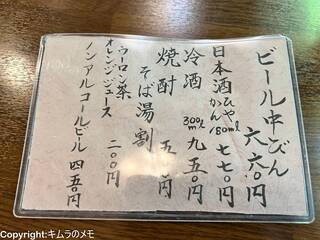 ビール中びん 六六〇円
日本酒 ひや かん 180ml 七七〇円
冷酒 300ml 九五〇円
焼酎 そば湯割 五 円
ウーロン茶
オレンジジュース 二〇〇円
ノンアルコールビール 四五〇円
Photo by キムラのメモ